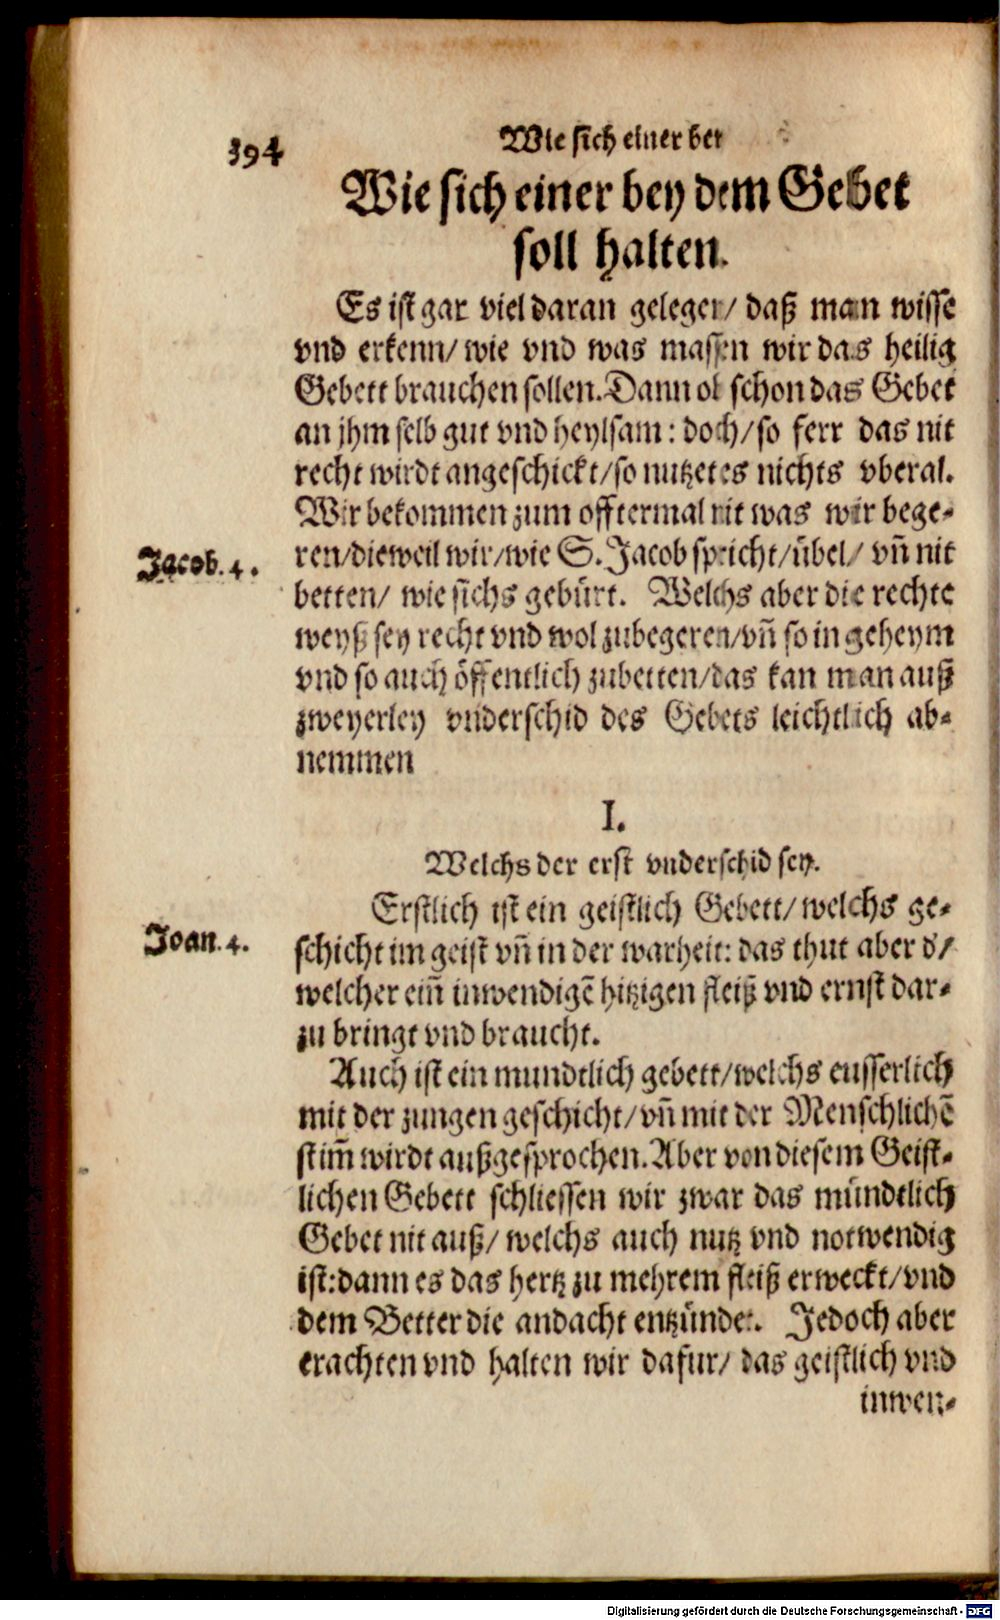 394
Wie sich einer bey
Wie sich einer bey dem Gebet
soll halten.
Es ist gar viel daran gelegen/ daß man wisse
vnd erkenn/ wie vnd was massen wir das heilig
Gebett brauchen sollen. Dann ob schon das Gebet
an jhm selb gut vnd heylsam: doch/ so ferr das nit
recht wirdt angeschickt/ so nutzet es nichts vberal.
Wir bekommen zum offtermal nit was wir bege-
Jacob. 4.
ren/ dieweil wir/ wie S. Jacob spricht/ übel/ vñ nit
betten/ wie sichs gebürt. Welchs aber die rechte
weyß sey recht vnd wol zubegeren/ vñ so in geheym
vnd so auch öffentlich zubetten/ das kan man auß
zweyerley vnderschid des Gebets leichtlich ab-
nemmen
I.
Welchs der erst vnderschid sey.
Erstlich ist ein geistlich Gebett/ welchs ge-
Joan. 4.
schicht im geist vñ in der warheit: das thut aber d'/
welcher eiñ inwendigẽ hitzigen fleiß vnd ernst dar-
zu bringt vnd braucht.
Auch ist ein mundtlich gebett/ welchs eusserlich
mit der zungen geschicht/ vñ mit der Menschlichẽ
stim̃ wirdt außgesprochen. Aber von diesem Geist-
lichen Gebett schliessen wir zwar das mündtlich
Gebet nit auß/ welchs auch nutz vnd notwendig
ist: dann es das hertz zu mehrem fleiß erweckt/ vnd
dem Better die andacht entzündet. Jedoch aber
erachten vnd halten wir dafur/ das geistlich vnd
inwen-
Digitalisierung gefördert durch die Deutsche Forschungsgemeinschaft - DFG